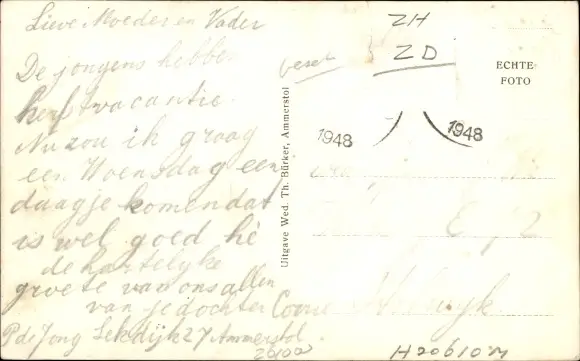 Lieve Moeder en Vader
De jongens hebben
herfstvacantie.
Nu zou ik graag
een Woensdag een
daagje komen dat
is wel goed hè
de hartelijke
groete van ons allen
van je dochter Corrie
P de Jong Lekdijk 27 Ammerstol
26102
Uitgave Wed. Th. Bürker, Ammerstol
ZH
ZD
ECHTE
FOTO
1948
1948
H20610M